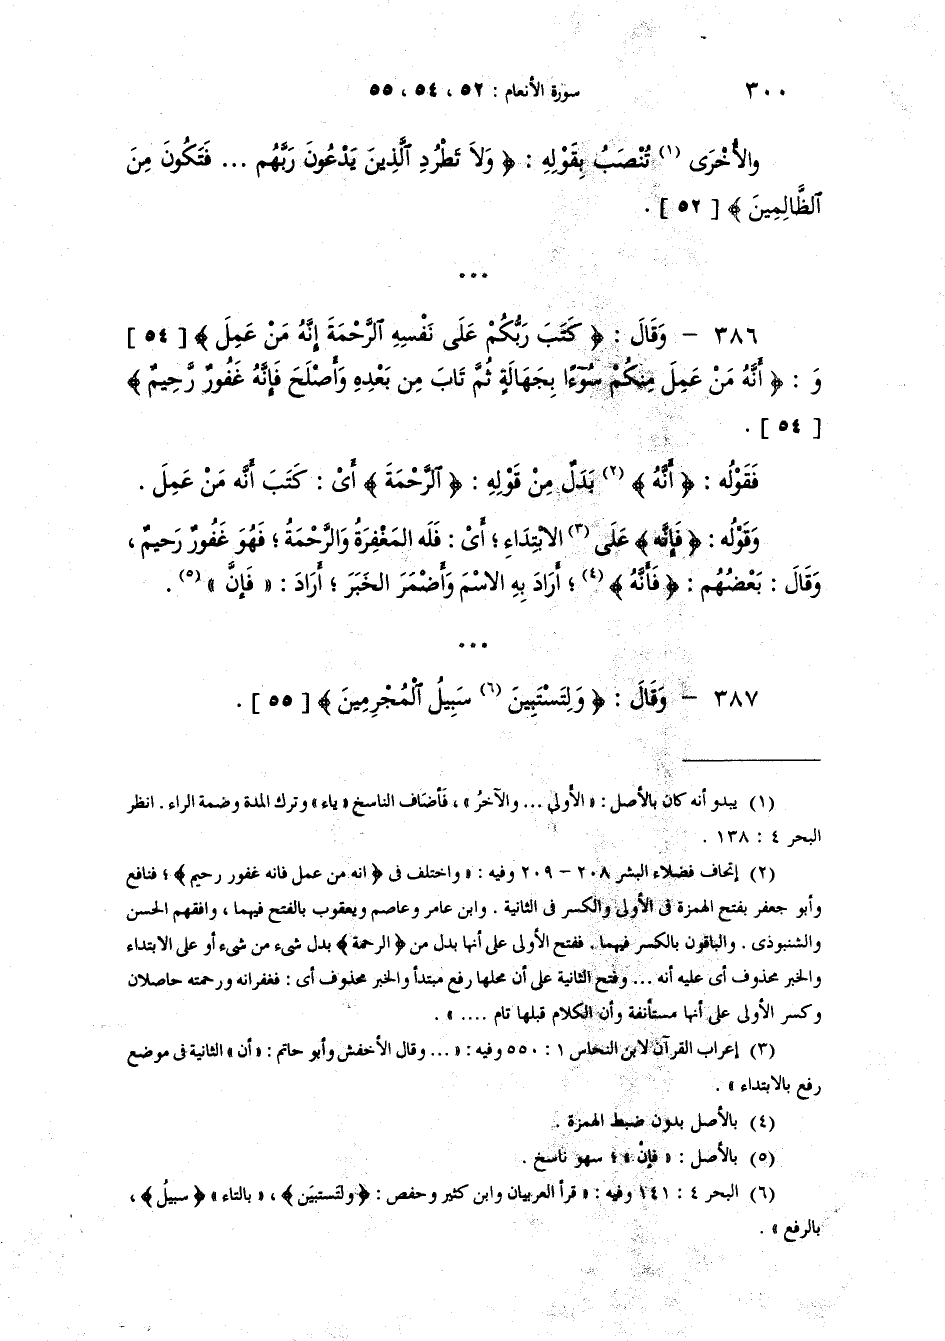 ٣٠٠ سورة الأنعام : ٥٢ ، ٥٤ ، ٥٥
والأُخْرَى (١) تُنْصَبُ بِقَوْلِهِ : ﴿ وَلاَ تَطْرُدِ ٱلَّذِينَ يَدْعُونَ رَبَّهُم ... فَتَكُونَ مِنَ
ٱلظَّالِمِينَ ﴾ [ ٥٢ ] .
• • •
٣٨٦ – وَقَالَ : ﴿ كَتَبَ رَبُّكُمْ عَلَى نَفْسِهِ ٱلرَّحْمَةَ إِنَّهُ مَنْ عَمِلَ ﴾ [ ٥٤ ]
وَ : ﴿ أَنَّهُ مَنْ عَمِلَ مِنكُمْ سُوٓءًا بِجَهَالَةٍ ثُمَّ تَابَ مِن بَعْدِهِ وَأَصْلَحَ فَإِنَّهُ غَفُورٌ رَّحِيمٌ ﴾
[ ٥٤ ] .
فَقَوْلُه : ﴿ أَنَّهُ ﴾ (٢) بَدَلٌ مِنْ قَوْلِهِ : ﴿ ٱلرَّحْمَةَ ﴾ أَىْ : كَتَبَ أَنَّه مَنْ عَمِلَ .
وَقَوْلُه : ﴿ فَإِنَّه ﴾ عَلَى (٣) الابْتِدَاءِ ؛ أَىْ : فَلَه المَغْفِرَةُ وَالرَّحْمَةُ ؛ فَهُوَ غَفُورٌ رَحِيمٌ ،
وَقَالَ : بَعْضُهُم : ﴿ فَأَنَّهُ ﴾ (٤) ؛ أَرَادَ بِهِ الاسْمَ وَأَضْمَرَ الخَبَرَ ؛ أَرَادَ : « فَإِنَّ » (٥) .
• • •
٣٨٧ – وَقَالَ : ﴿ وَلِتَسْتَبِينَ (٦) سَبِيلُ ٱلْمُجْرِمِينَ ﴾ [ ٥٥ ] .
(١) يبدو أنه كان بالأصل : « الأولى ... والآخرُ » ، فَأضَاف الناسخ « ياء » وترك المدة وضمة الراء . انظر
البحر ٤ : ١٣٨ .
(٢) إتحاف فضلاء البشر ٢٠٨ – ٢٠٩ وفيه : « واختلف فى ﴿ انه من عمل فانه غفور رحيم ﴾ ؛ فنافع
وأبو جعفر بفتح الهمزة فى الأولى والكسر فى الثانية . وابن عامر وعاصم ويعقوب بالفتح فيهما ، وافقهم الحسن
والشنبوذى . والباقون بالكسر فيهما . ففتح الأولى على أنها بدل من ﴿ الرحمة ﴾ بدل شىء من شىء أو على الابتداء
والخبر محذوف أى عليه أنه ... وفتح الثانية على أن محلها رفع مبتدأ والخبر محذوف أى : فغفرانه ورحمته حاصلان
وكسر الأولى على أنها مستأنفة وأن الكلام قبلها تام .... » .
(٣) إعراب القرآن لابن النحاس ١ : ٥٥٠ وفيه : « ... وقال الأخفش وأبو حاتم : « أن » الثانية فى موضع
رفع بالابتداء » .
(٤) بالأصل بدون ضبط الهمزة .
(٥) بالأصل : « فإنْ » ؛ سهو ناسخ .
(٦) البحر ٤ : ١٤١ وفيه : « قرأ العربيان وابن كثير وحفص : ﴿ ولتَستبيَن ﴾ ، « بالتاء » ﴿ سبيلُ ﴾ ،
بالرفع » .